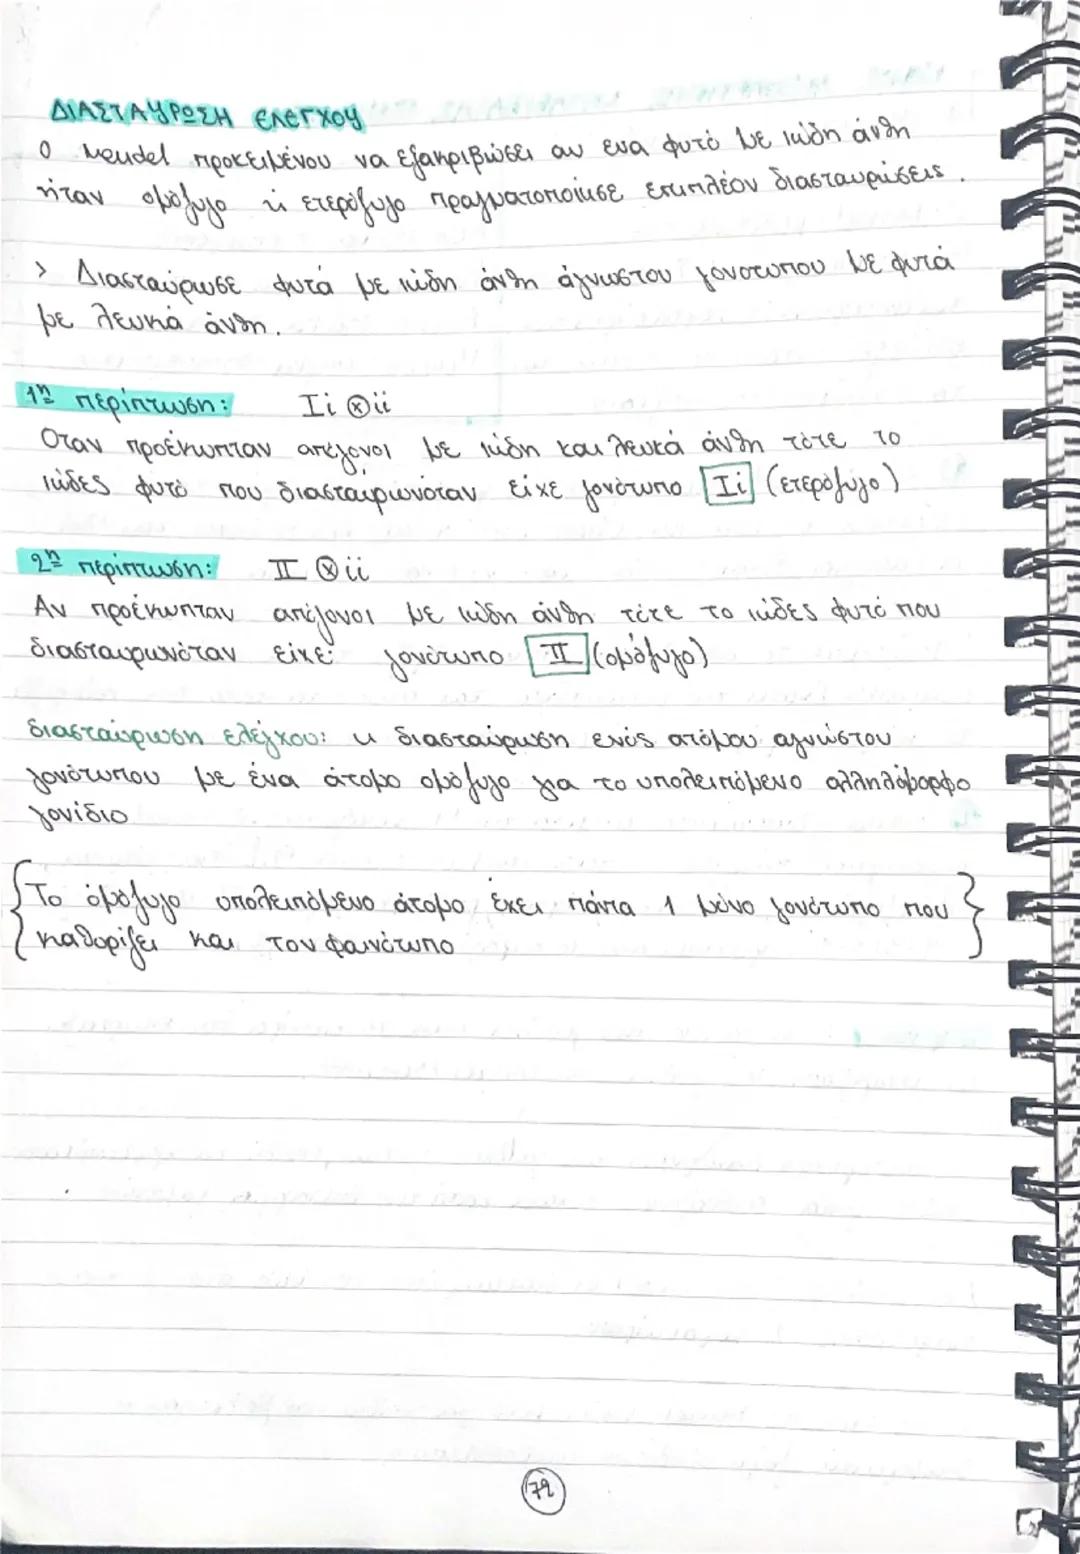 ΔΙΑΣΤΑΥΡΩΣΗ ΕΛΕΓΧΟΥ
Ο Mendel προκειμένου να εξακριβώσει αν ενα φυτό με ιώδη άνθη
ήταν ομόζυγο ή ετερόζυγο πραγματοποίησε επιπλέον διασταυρώσεις.
> Διασταύρωσε φυτά με ιώδη άνθη άγνωστου γονοτυπου με φυτά
με λευκά άνθη.
1η περίπτωση: Ιi ⊗ ii
Οταν προέκυπταν απόγονοι με ιώδη και λευκά άνθη τότε το
ιώδες φυτό που διασταυρωνόταν είχε γονότυπο Ιi (ετερόζυγο)
2η περίπτωση: ΙΙ ⊗ ii
Αν προέκυπταν απόγονοι με ιώδη άνθη τότε το ιώδες φυτό που
διασταυρωνόταν είχε γονότυπο ΙΙ (ομόζυγο)
διασταύρωση ελέγχου: η διασταύρωση ενός ατόμου αγνώστου
γονότυπου με ένα άτομο ομόζυγο για το υπολειπόμενο αλληλόμορφο
γονίδιο
{Το όμόζυγο υπολειπόμενο άτομο έχει πάντα 1 μόνο γονότυπο που
καθορίζει και τον φαινότυπο}
72